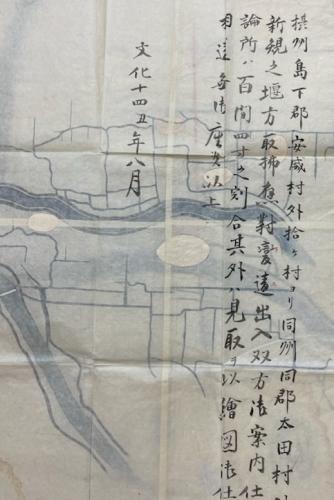 摂州島下郡安威村外拾ヶ村ヨリ同州同郡太田村
新規之堰方取拂
對
變違出入双方御案内仕
論所ハ百間四寸之割合其外ハ見取ヲ以繪圖御仕
相違無御座候以上
文化十四丑年八月